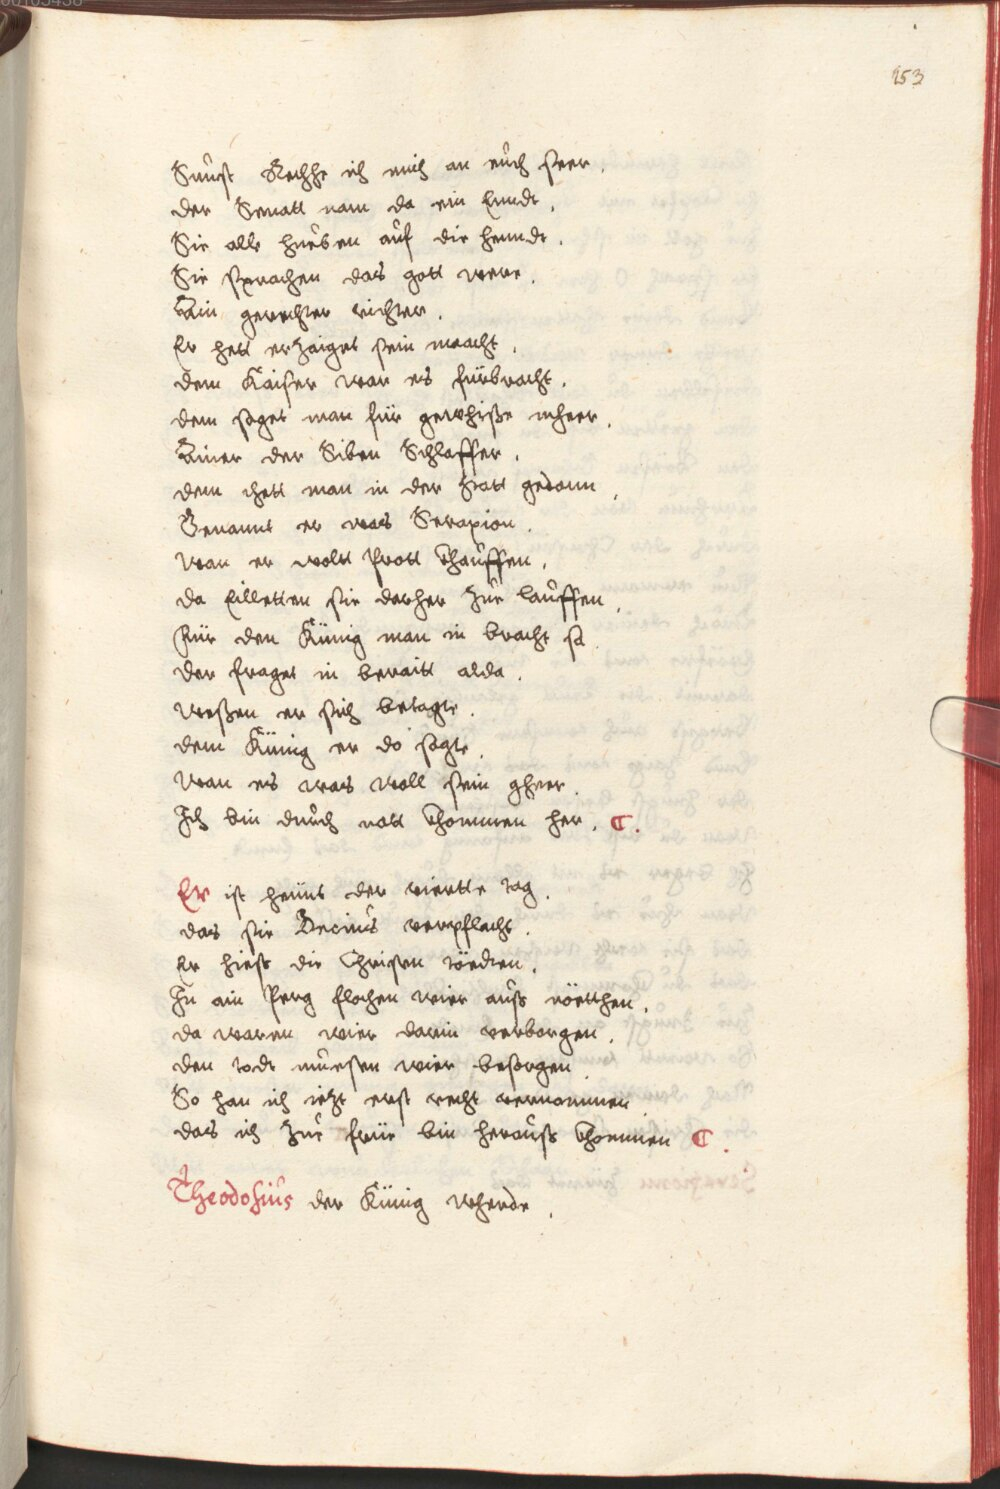 253
Sunst Rechhe ich mich an euch seer.
der Senatt nam da ein Enndt.
Sie alle hueben auf die henndt.
Sie sprachen das gott were.
Ain gerechter richter.
Er hett erzaiget sein macht.
dem Kaiser war es fürbracht.
dem saget man für gewhiße mheer.
Ainer der Siben Schlaffer.
dem thett man in der Statt gedonn.
Genannt er was Serapion.
wan er wolt Prott khauffen.
da Eilletten sie derher zue lauffen.
Für den Künig man in bracht sa
der fraget in beraitt alda.
weßen er sich betagte.
dem Künig er do sagte.
wan es was woll sein gheer.
Ich bin durch nott khommen her. C.
Er ist heünt der viertte tag.
das sie Decius verpflacht.
Er hieß die Christen töedten.
In ain Perg flochen wier auß nöetthen.
da waren wier darin verborgen.
den todt muesen wier besorgen.
So han ich iezt erst recht vernommen.
das ich zue frue bin herauß khommen C.
Theodosius der Künig wherde.